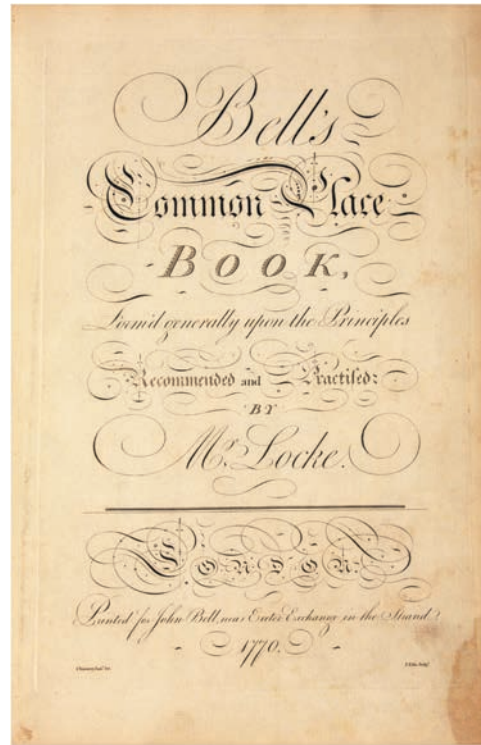 Bell's
Common Place
BOOK,
Form'd generally upon the Principles
Recommended and Practiſed:
BY
Mr. Locke.
LONDON:
Printed for John Bell, near Exeter Exchange in the Strand
1770.